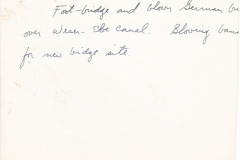 Foot-bridge and blown German
over Weser-Elbe canal. Blowing
for new bridge site.